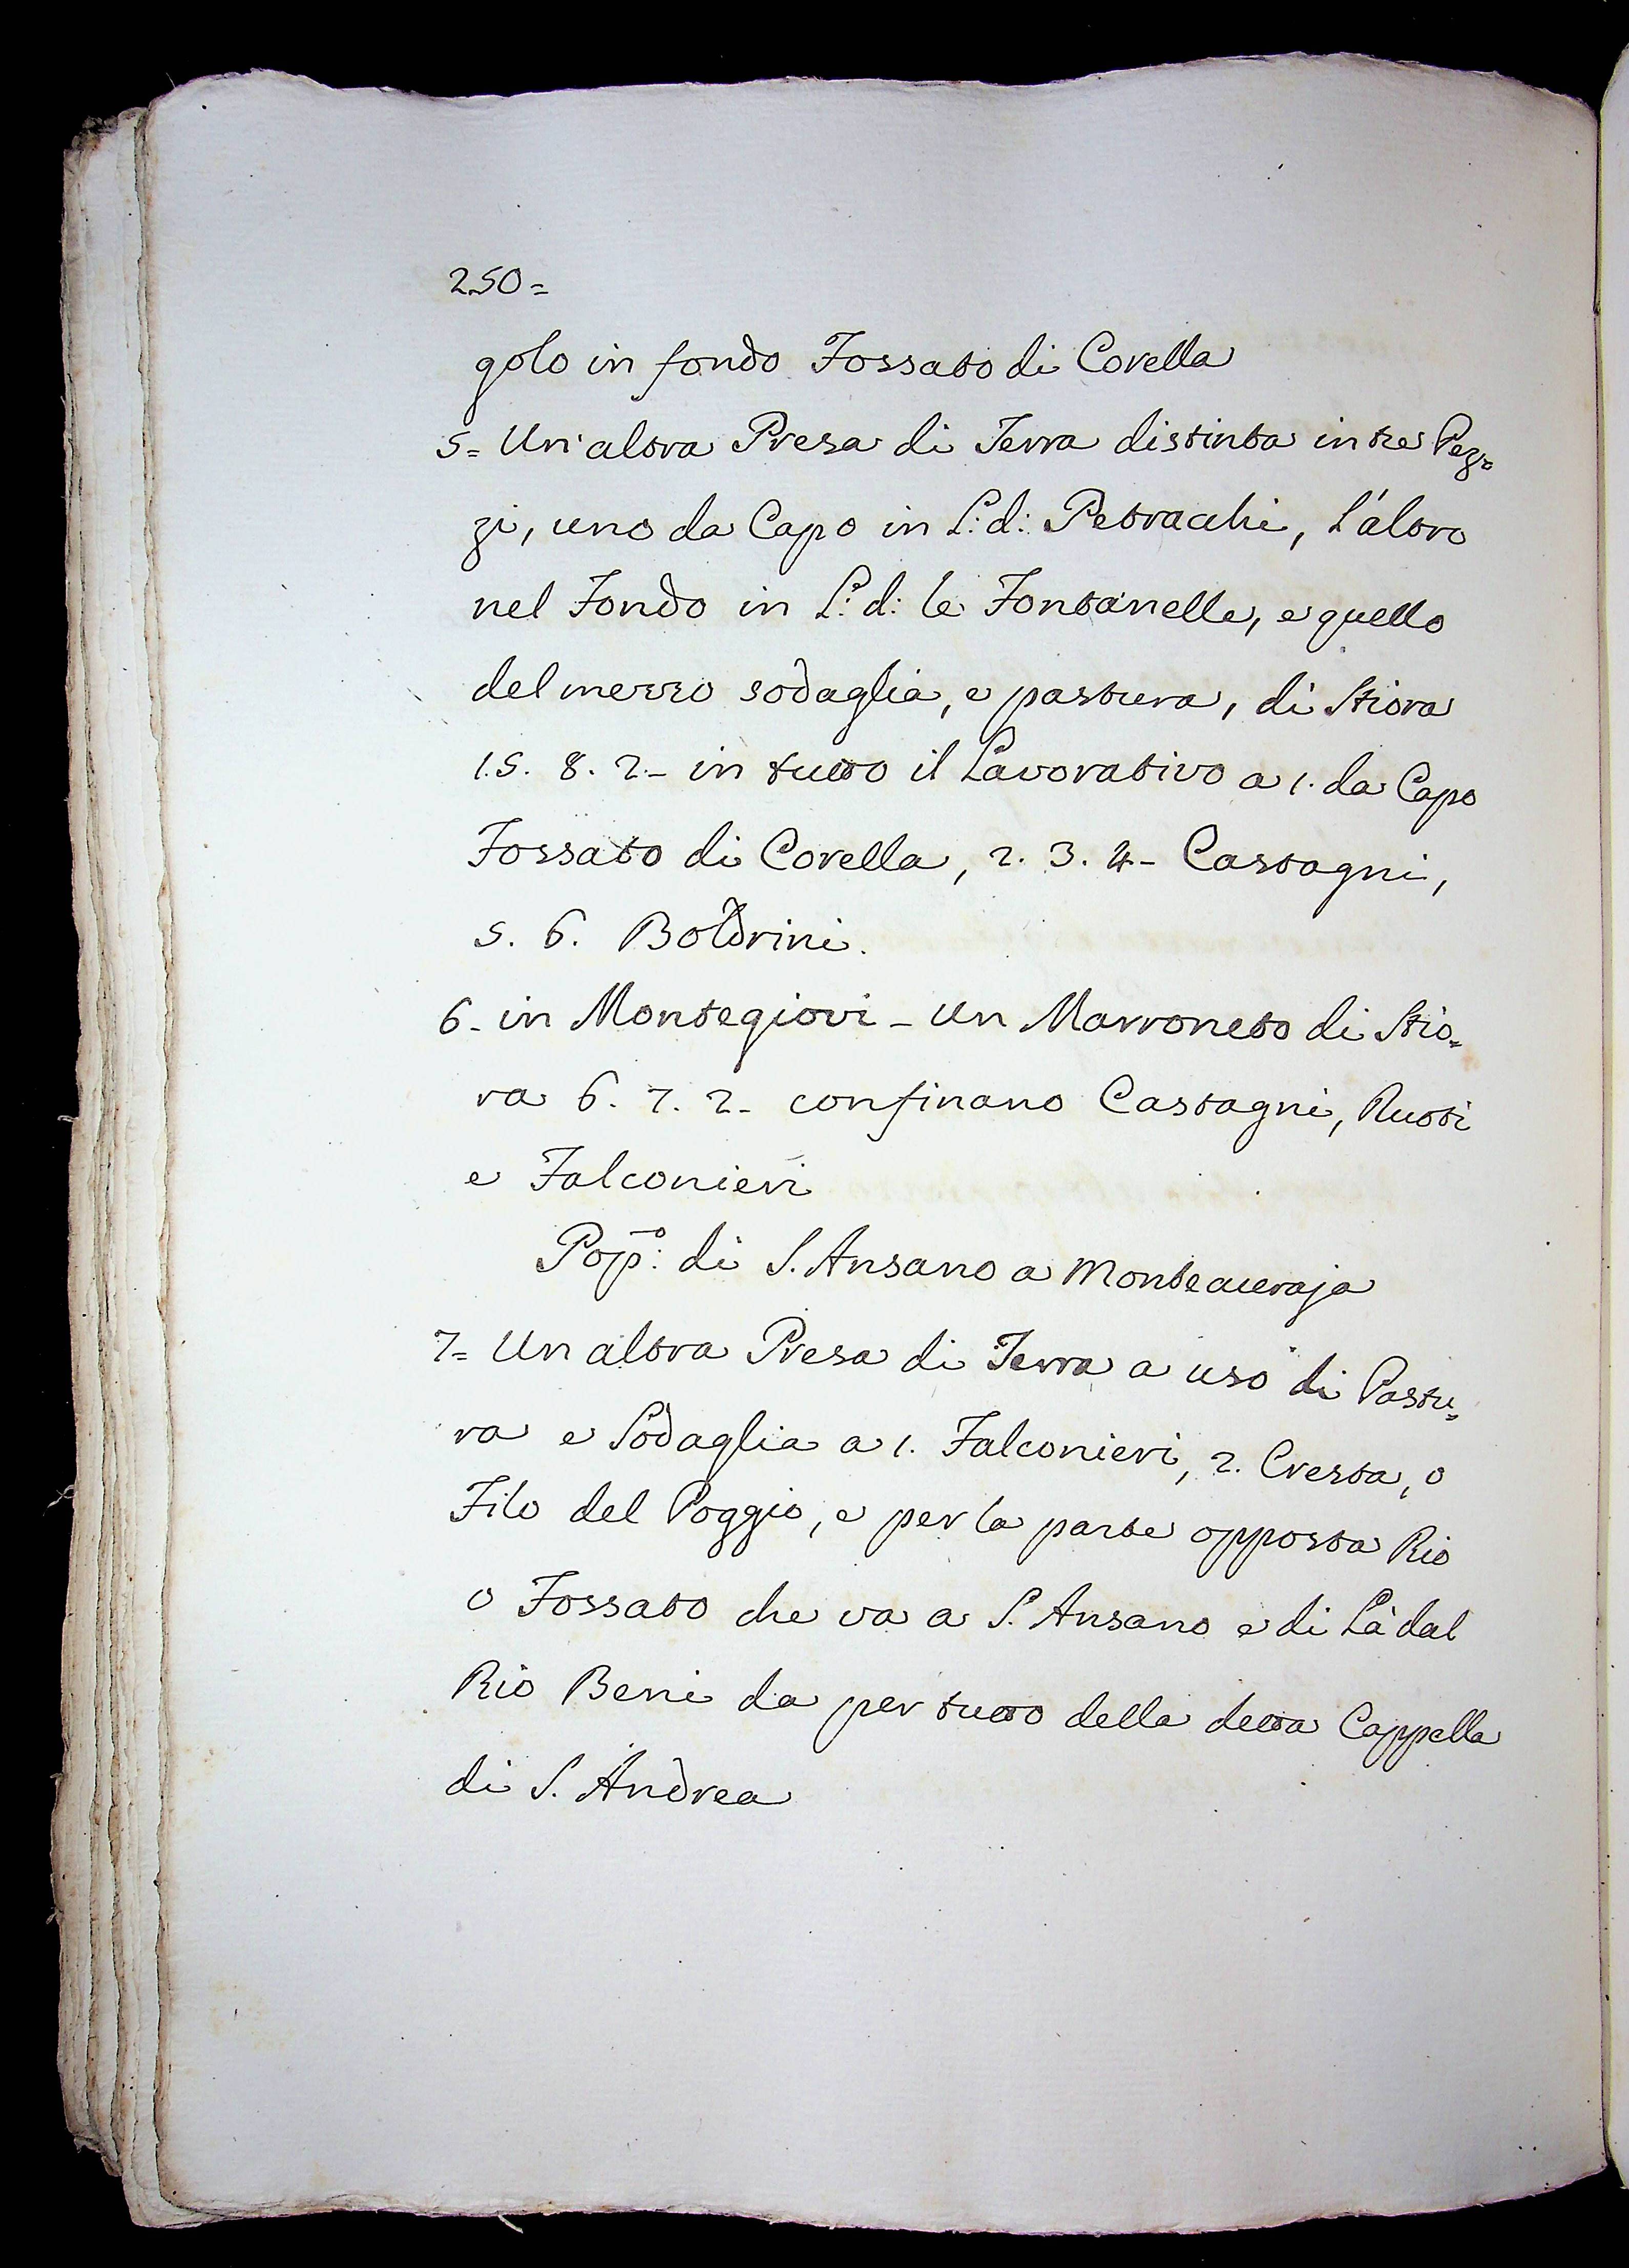 250=
golo in fondo Fossato di Corella
5= Un'altra Presa di Terra distinta in tre Pez=
zi, uno da Capo in L: d: Petracchi, l'altro
nel Fondo in L: d: le Fontanelle, e quello
del mezzo sodaglia, e pastura, di Stiora
15. 8. 2.- in tutto il Lavorativo a 1. da Capo
Fossato di Corella, 2. 3. 4- Castagni,
5. 6. Boldrini.
6- in Montegiovi - un Marroneto di Stio=
ra 6. 7. 2- confinano Castagni, Ruoti
e Falconieri
Pop:º di S. Ansano a Monteaceraja
7= Un altra Presa di Terra a uso di Pastu=
ra e Sodaglia a 1. Falconieri, 2. Cresta, o
Filo del Poggio, e per la parte opposta Rio
o Fossato che va a S. Ansano e di Là dal
Rio Beni da per tutto della detta Cappella
di S. Andrea